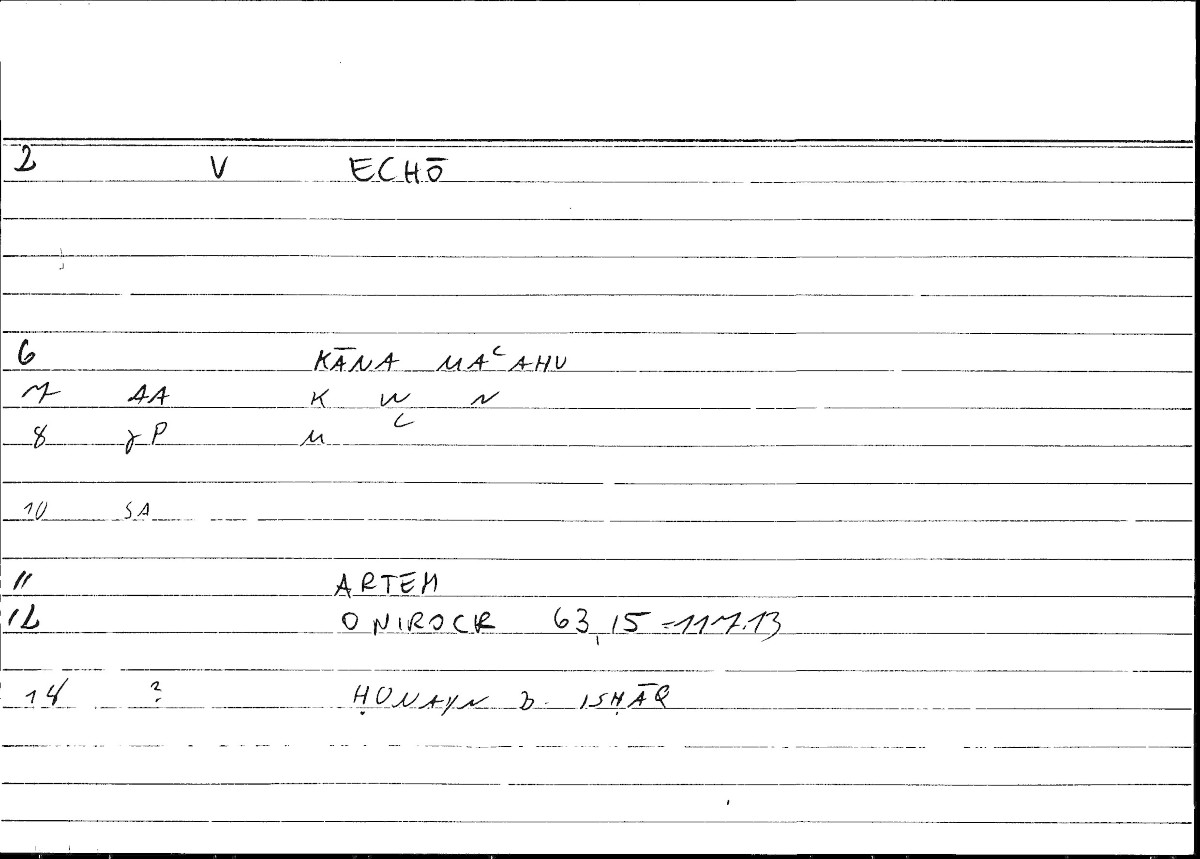 2 V ECHŌ
6 KĀNA MAʿAHU
7 AA K W N
8 γP M ʿ
10 SA
11 ARTEM
12 ONIROCR 63,15 = 117.13
14 ? ḤUNAYN B. ISḤĀQ